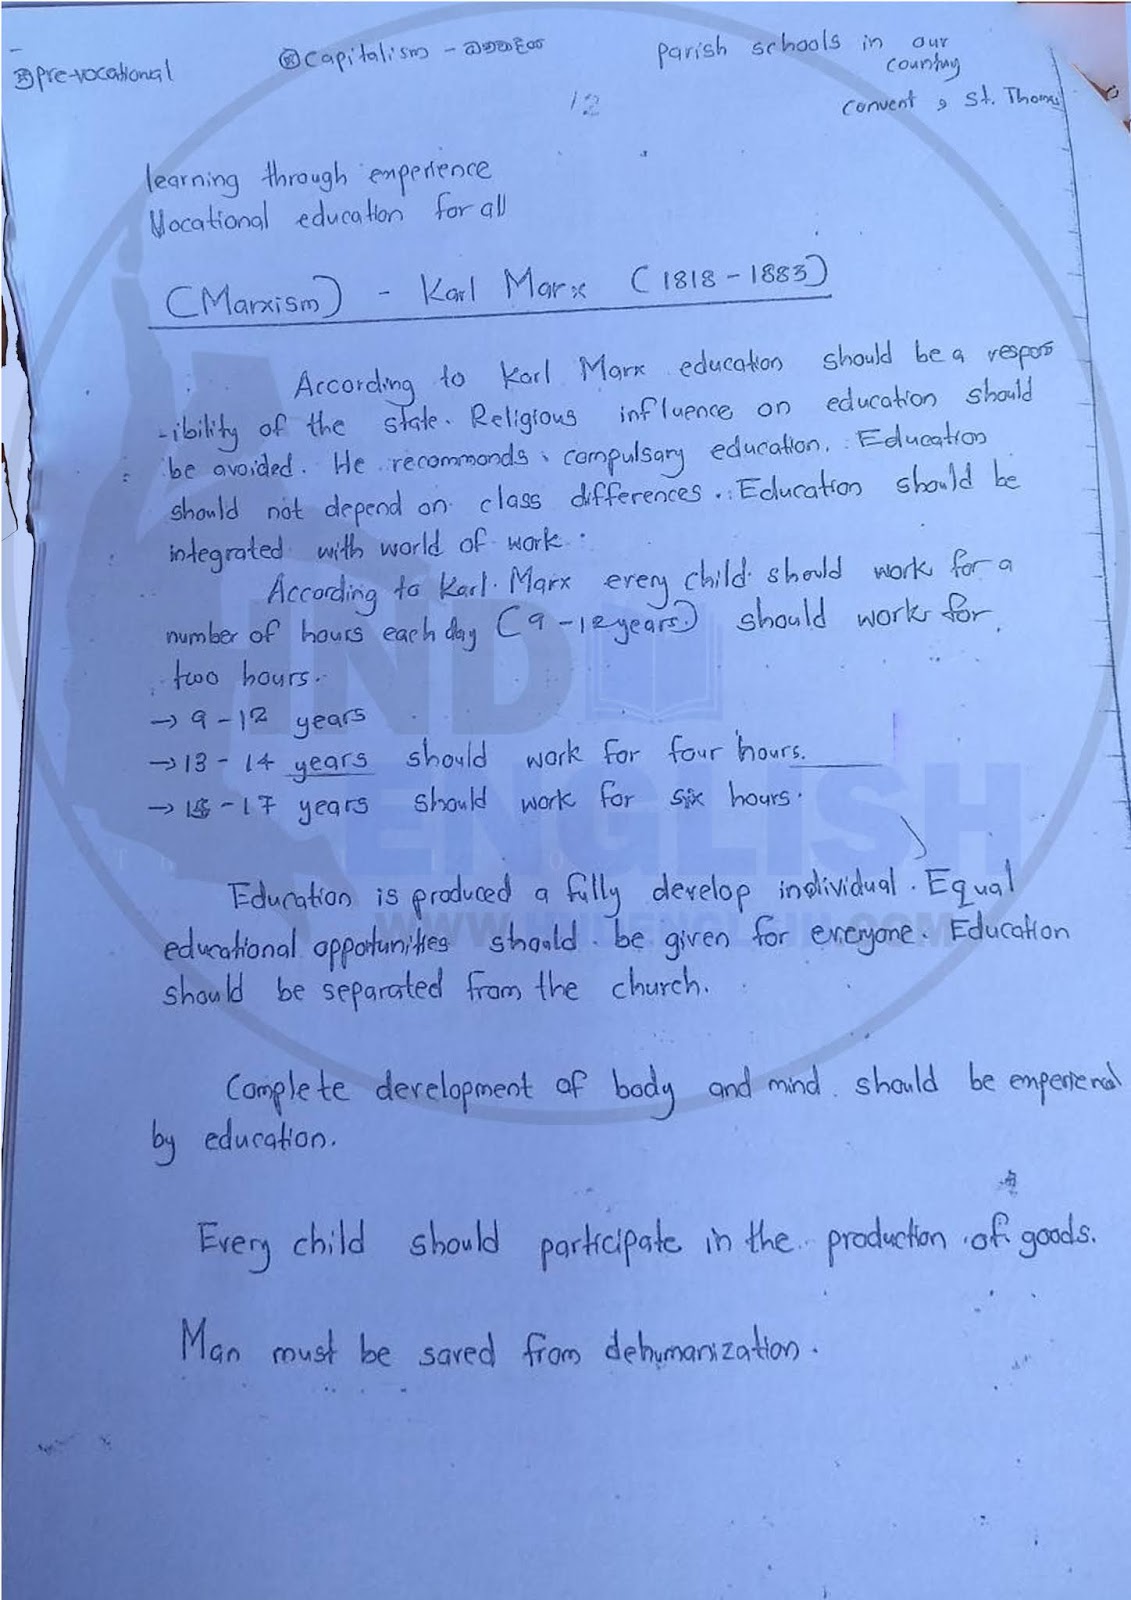 ⊛ capitalism - ධනවාදය
parish schools in our
country
⊛ pre-vocational
convent , St. Thomas
12
learning through experience
Vocational education for all
(Marxism) - Karl Marx (1818 - 1883)
According to Karl Marx education should be a respons
-ibility of the state. Religious influence on education should
be avoided. He recommonds compulsary education. Education
should not depend on class differences. Education should be
integrated with world of work.
According to Karl Marx every child should work for a
number of hours each day (9 - 12 years) should work for
two hours.
→ 9 - 12 years
→ 13 - 14 years should work for four hours.
→ 15 - 17 years should work for six hours.
Education is produced a fully develop individual. Equal
educational opportunities should be given for everyone. Education
should be separated from the church.
Complete development of body and mind should be
by education.
Every child should participate in the production of goods.
Man must be saved from dehumanization.
HND
ENGLISH
WWW.HNDENGLSIH.COM